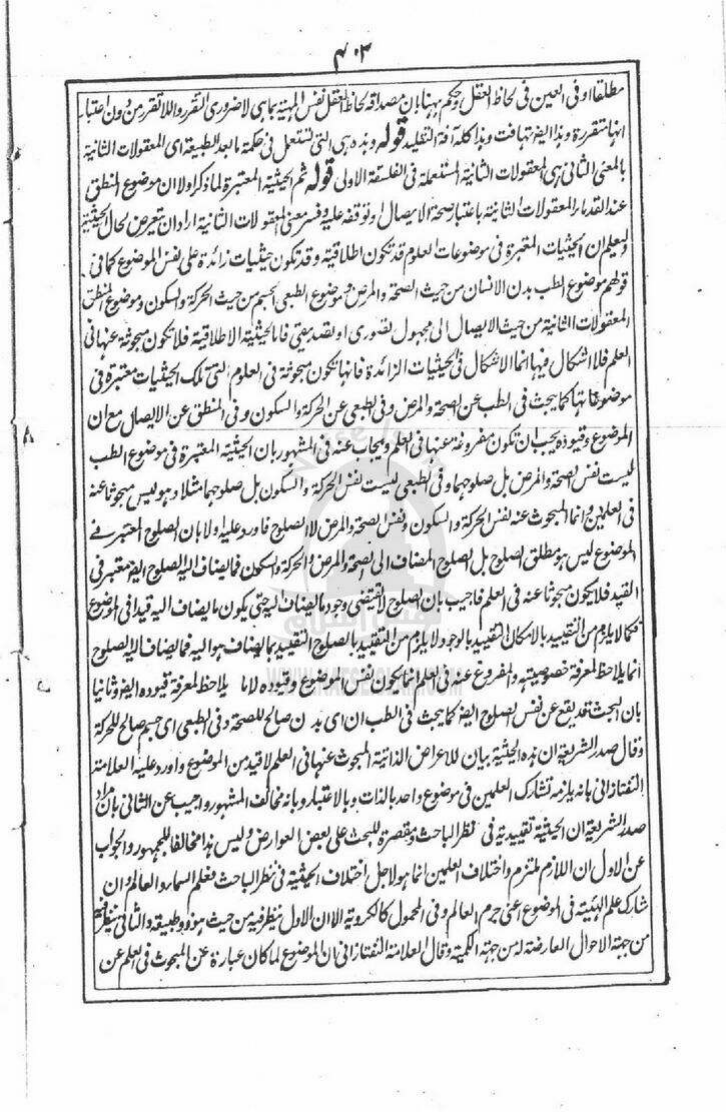 ۴۰۳
مطلقا او فی العین فی لحاظ العقل او حکم بہنا بان مصداقہ لحاظ العقل نفس الماہیۃ بماہی لا ضروری التقرر واللاتقرر من دون اعتبار
انہا متقررۃ وہذا ایضا تہافت وہذا کلہ آفۃ التقلید قولہ وہذہ ہی التی تستعمل فی حکمۃ ما بعد الطبیعۃ ای المعقولات الثانیۃ
بالمعنی الثانی ہی المعقولات الثانیۃ المستعملۃ فی الفلسفۃ الاولی قولہ ثم الحیثیۃ المعتبرۃ لما ذکر اولا ان موضوع المنطق
عند القدماء المعقولات الثانیۃ باعتبار صحۃ الایصال او توقفہ علیہ وفسر معنی المعقولات الثانیۃ اراد ان یتعرض لحال الحیثیۃ
ولیعلم ان الحیثیات المعتبرۃ فی موضوعات العلوم قد تکون اطلاقیۃ وقد تکون حیثیات زائدۃ علی نفس الموضوع کما فی
قولہم موضوع الطب بدن الانسان من حیث الصحۃ والمرض وموضوع الطبعی الجسم من حیث الحرکۃ والسکون وموضوع المنطق
المعقولات الثانیۃ من حیث الایصال الی مجہول تصوری او تصدیقی فاما الحیثیۃ الاطلاقیۃ فلا تکون مبحوثۃ عنہا فی
العلم فلا اشکال فیہا انما الاشکال فی الحیثیات الزائدۃ فانہا تکون مبحوثۃ فی العلوم التی تلک الحیثیات معتبرۃ فی
موضوعاتہا کما یبحث فی الطب عن الصحۃ والمرض وفی الطبعی عن الحرکۃ والسکون وفی المنطق عن الایصال مع ان
الموضوع وقیودہ یجب ان تکون مفروغۃ عنہا فی العلم ویجاب عنہ فی المشہور بان الحیثیۃ المعتبرۃ فی موضوع الطب
لیست نفس الصحۃ والمرض بل صلوحہما وفی الطبعی لیست نفس الحرکۃ والسکون بل صلوحہما مثلا وہو لیس مبحوثا عنہ
فی العلمین وانما المبحوث عنہ نفس الحرکۃ والسکون ونفس الصحۃ والمرض لا الصلوح فاورد علیہ اولا بان الصلوح المعتبر فی
الموضوع لیس ہو مطلق الصلوح بل الصلوح المضاف الی الصحۃ والمرض والحرکۃ والسکون فالمضاف الیہ الصلوح ایضا معتبر فی
القید فلا یکون مبحوثا عنہ فی العلم فاجیب بان الصلوح لا یقتضی وجود ما یضاف الیہ حتی یکون ما یضاف الیہ قیدا فی الموضوع
فکما لا یلزم من التقیید بالامکان التقیید بالوجود لا یلزم من التقیید بالصلوح التقیید بما یضاف ہو الیہ فما یضاف الیہ الصلوح
انما یلاحظ لمعرفۃ خصوصیتہ والمفروغ عنہ فی العلم انما یکون نفس الموضوع وقیودہ لا ما یلاحظ لمعرفۃ قیودہ ایضا وثانیا
بان البحث قد یقع عن نفس الصلوح ایضا کما یبحث فی الطب ان ای بدن صالح للصحۃ وفی الطبعی ای جسم صالح للحرکۃ
وقال صدر الشریعۃ ان ہذہ الحیثیۃ بیان للاعراض الذاتیۃ المبحوث عنہا فی العلم لا قید من الموضوع واورد علیہ العلامۃ
التفتازانی بانہ یلزمہ تشارک العلمین فی موضوع واحد بالذات وبالاعتبار وبانہ مخالف المشہور واجیب عن الثانی بان مراد
صدر الشریعۃ ان الحیثیۃ تقییدیۃ فی نظر الباحث ومقصرۃ للبحث علی بعض العوارض ولیس ہذا مخالفا للجمہور والجواب
عن الاول ان اللازم ملتزم واختلاف العلمین انما ہو لاجل اختلاف الحیثیۃ فی نظر الباحث فعلم السماء والعالم وان
شارک علم الہیئۃ فی الموضوع اعنی جرم العالم وفی المحمول کالکرویۃ الا ان الاول ینظر فیہ من حیث ہو ذو طبیعۃ والثانی ینظر فیہ
من جہۃ الاحوال العارضۃ لہ من جہۃ الکمیۃ وقال العلامۃ التفتازانی ان الموضوع لما کان عبارۃ عن المبحوث فی العلم عن